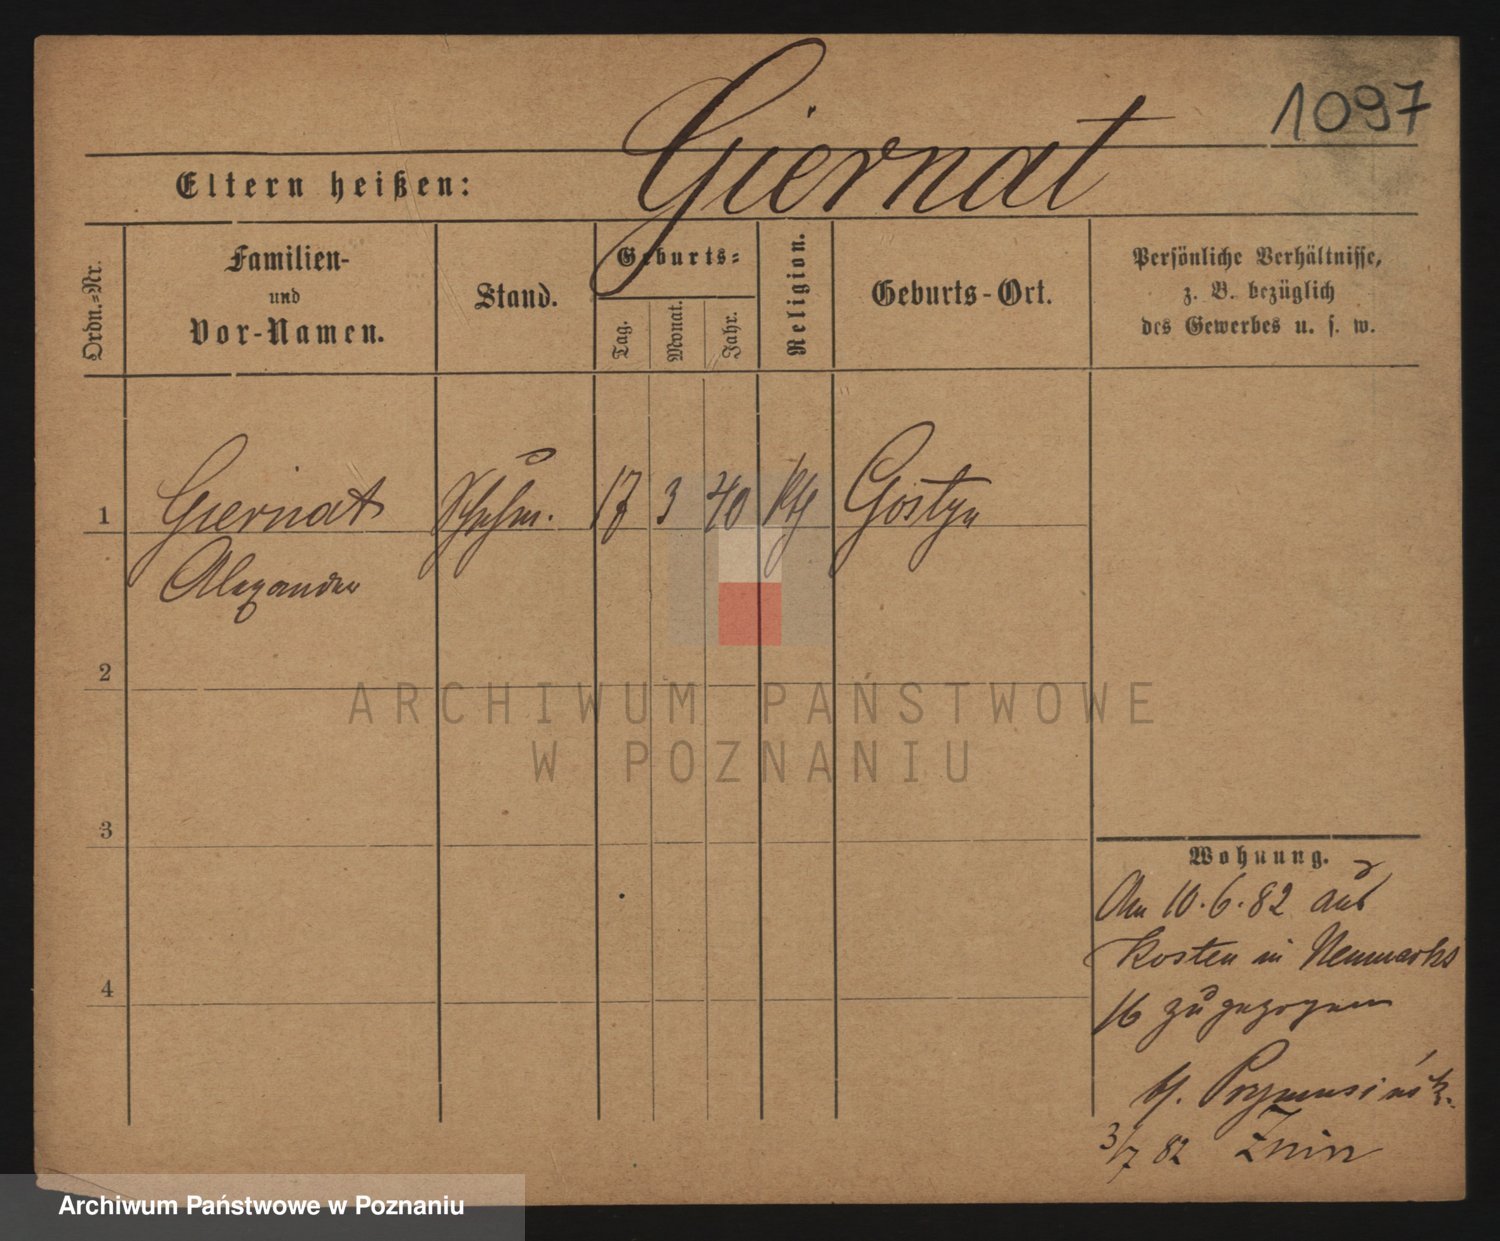 1097
Giernat
Eltern heißen:
Ordn.=Nr.
Familien-
und
Vor-Namen.
Stand.
Geburts=
Tag.
Monat.
Jahr.
Religion.
Geburts-Ort.
Persönliche Verhältnisse,
z. B. bezüglich
des Gewerbes u. s. w.
1 Giernat 17 3 40 kth Gostyn
Alexander
2
3
4
Wohnung.
Am 10.6.82 aus
Kosten in Neumarks
16 zugezogen
3/7 82 Znin
ARCHIWUM PAŃSTWOWE
W POZNANIU
Archiwum Państwowe w Poznaniu